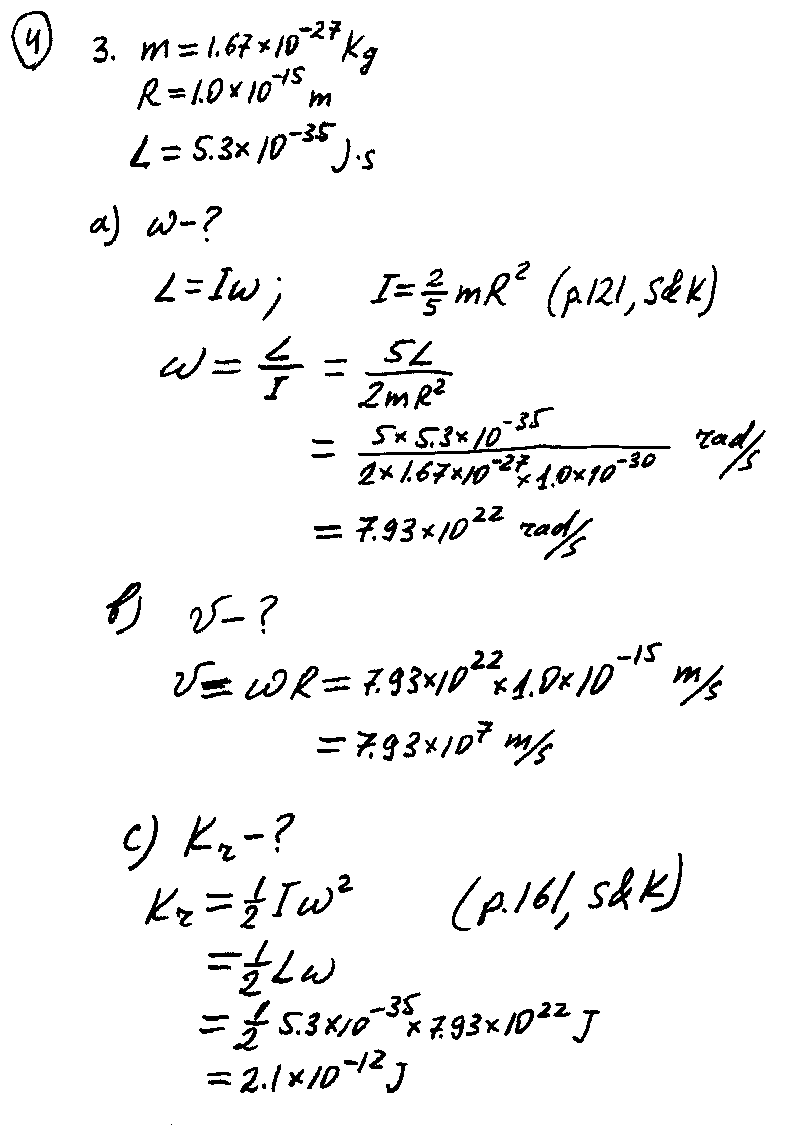 4
3. m = 1.67×10⁻²⁷ Kg
R = 1.0×10⁻¹⁵ m
L = 5.3×10⁻³⁵ J·s
a) ω-?
L = Iω; I = 2/5 mR² (p.121, S&K)
ω = L/I = 5L/2mR²
= 5×5.3×10⁻³⁵/2×1.67×10⁻²⁷×1.0×10⁻³⁰ rad/s
= 7.93×10²² rad/s
b) v-?
v = ωR = 7.93×10²²×1.0×10⁻¹⁵ m/s
= 7.93×10⁷ m/s
c) Kr-?
Kr = 1/2 Iω² (p.161, S&K)
= 1/2 Lω
= 1/2 5.3×10⁻³⁵×7.93×10²² J
= 2.1×10⁻¹² J